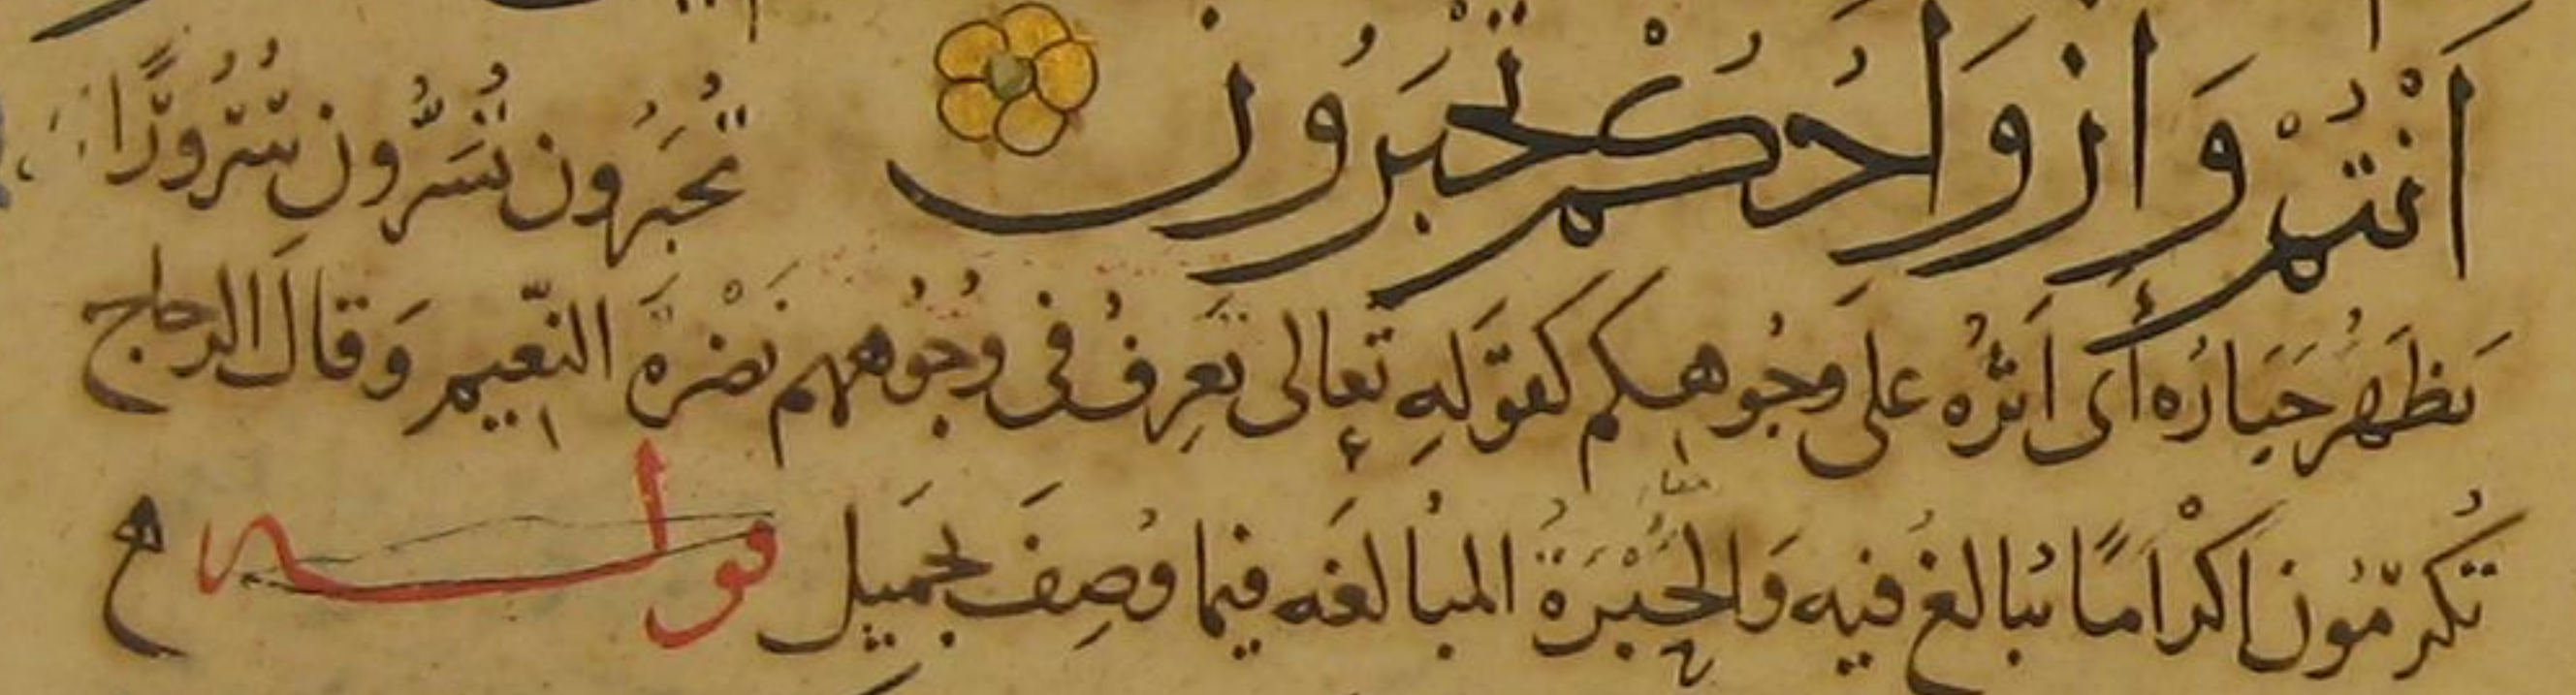 اَنْتُمْ وَاَزْوَاجُكُمْ تُحْبَرُونَ تُحْبَرُون تُسَرُّون سُرُورًا
يَظْهَرُ حَبَارُه أَى اَثَرُه عَلى وجُوهِكم كقَوْلِهِ تَعَالى تَعرِفُ فى وجُوههم نَضْرَةَ النّعِيم وَقالَ الزجاج
تُكرَمُون اِكْرَامًا يُبالغُ فيه وَالحَبْرَةُ المبُالغَه فيما وُصِفَ بجَميل قولـــه